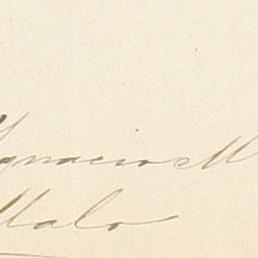 Ignacio M
Malo